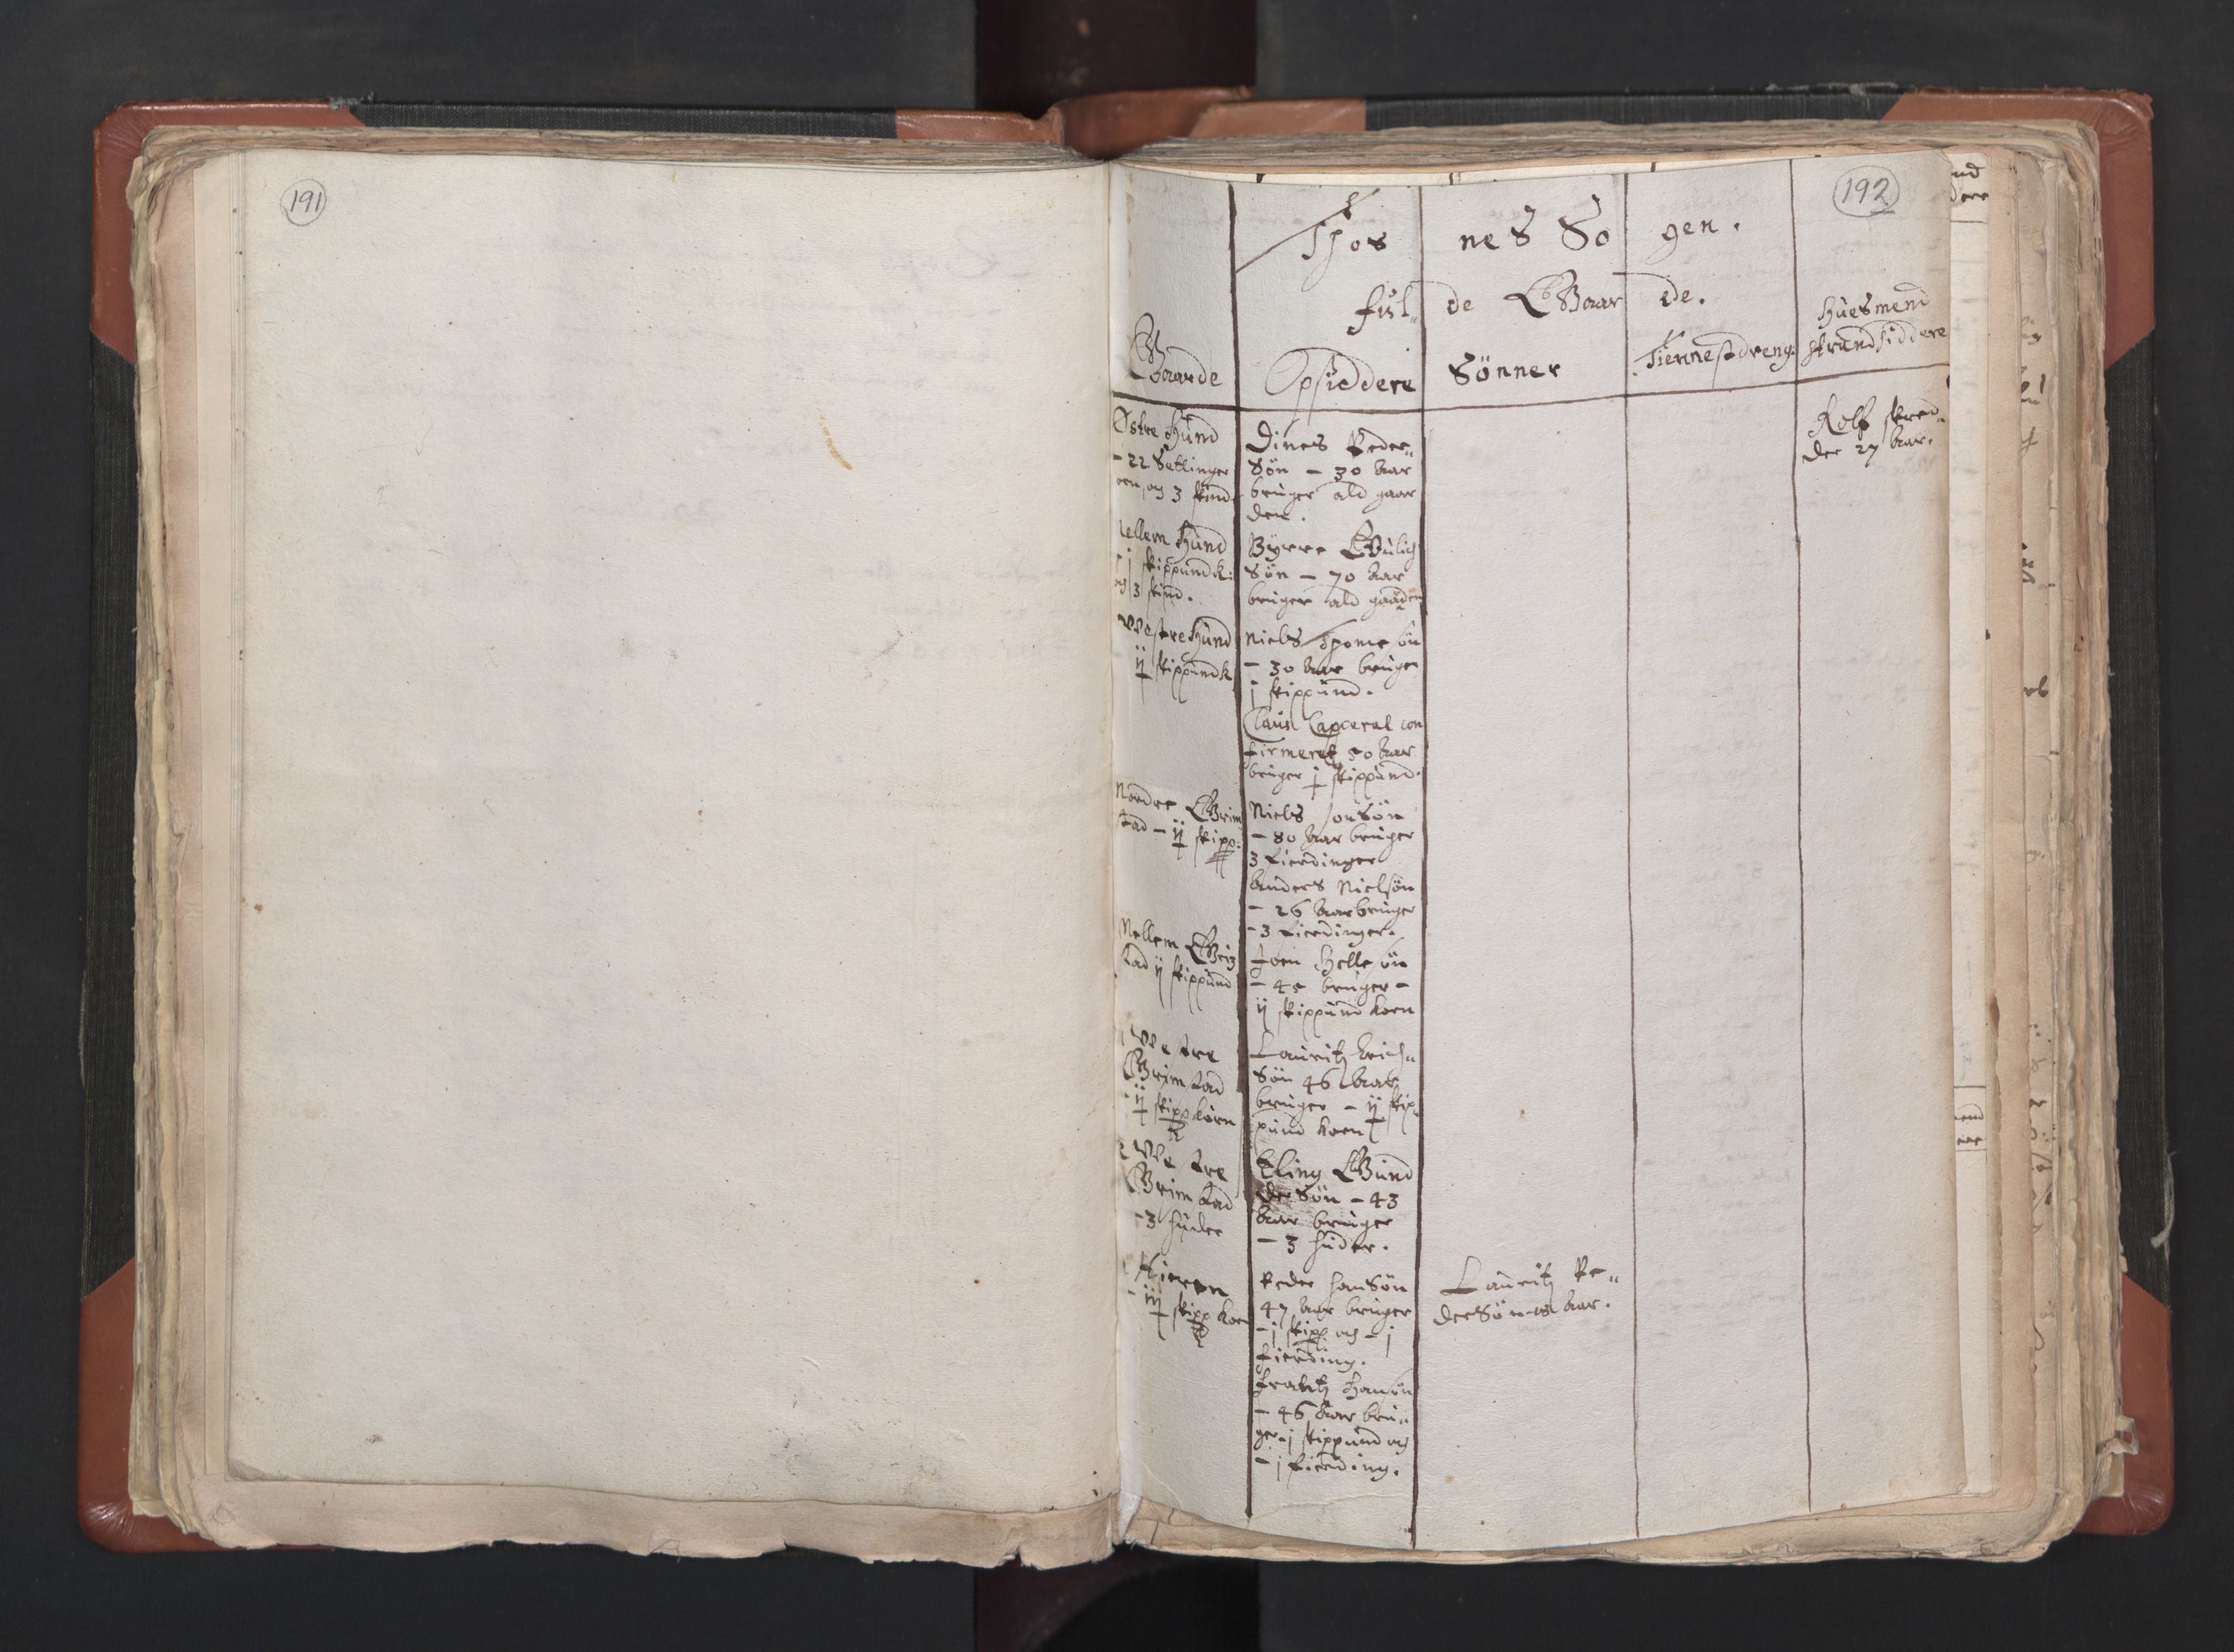 191
192
Thos nes So gen.
ful„ de Gaar de.
Gaarde
Opsiddere
Sönner
Tiennestdreng:
Huesmend
strandsiddere
Østre Hund
- 22 Setlinger
og 3 skind
Dines Peder„
Sön - 30 Aar
bruger ald gaar
den.
Rolf skred„
der 27 Aar.
Mellem Hund
- j skippund k:
og 3 skind.
Byrre
Sön - 70 Aar
bruger ald gaarden
Westre Hund
ij skippund k
Niels Thomesön
- 30 Aar bruger
j skippund.
Claus Capperal con
firmeret 50 Aar
bruger j skippund.
Nordre Grim
stad - ij skipp:
Niels JonSön
- 80 Aar bruger
3 fierdinger
Anders Nielsön
- 26 Aar bruger
- 3 fierdinger.
Mellem Grim
stad ij skippund
Joen Hellesön
- 45 bruger -
ij skippund korn
Westre
Grimstad
- ij skipp korn
Lauritz Erich„
Sön 46 Aar
bruger - ij skip„
pund korn
Westre
Grimstad
- 3 huder
Eling Gund
derSön - 43
Aar bruger
- 3 huder.
- iij skipp korn
Peder HanSön
47 Aar bruger
- j skipp og - j
fierding.
Lauritz Pe„
derSön Aar.
Frantz Hansön
- 46 Aar bru„
ger - j skippund og
- j fierding.